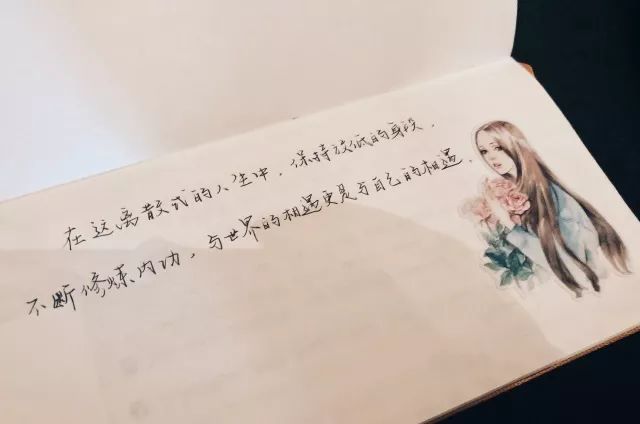 在这离散式的人生中，保持放低的身段，
不断修炼内功，与世界的相遇更是与自己的相遇．